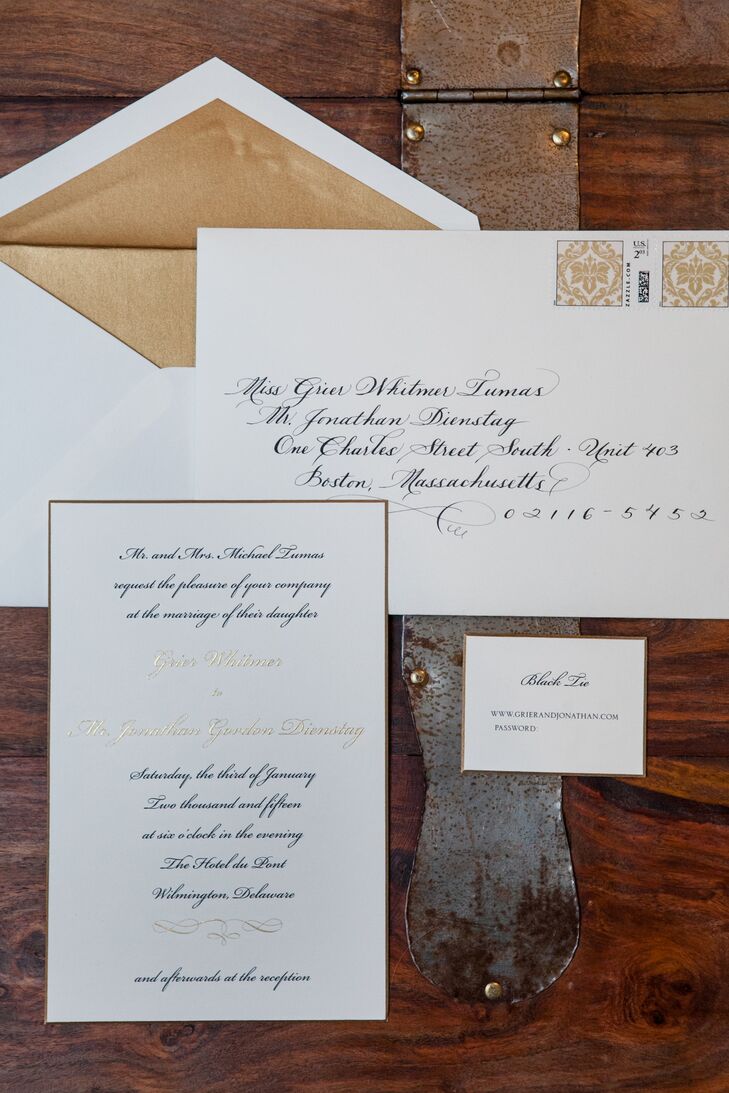 U.S.
2 03
ZAZZLE.COM
Miss Grier Whitmer Tumas
Mr. Jonathan Dienstag
One Charles Street South · Unit 403
Boston, Massachusetts
02116-5452
Mr. and Mrs. Michael Tumas
request the pleasure of your company
at the marriage of their daughter
Grier Whitmer
to
Mr. Jonathan Gordon Dienstag
Saturday, the third of January
Two thousand and fifteen
at six o'clock in the evening
The Hotel du Pont
Wilmington, Delaware
and afterwards at the reception
Black Tie
WWW.GRIERANDJONATHAN.COM
PASSWORD: